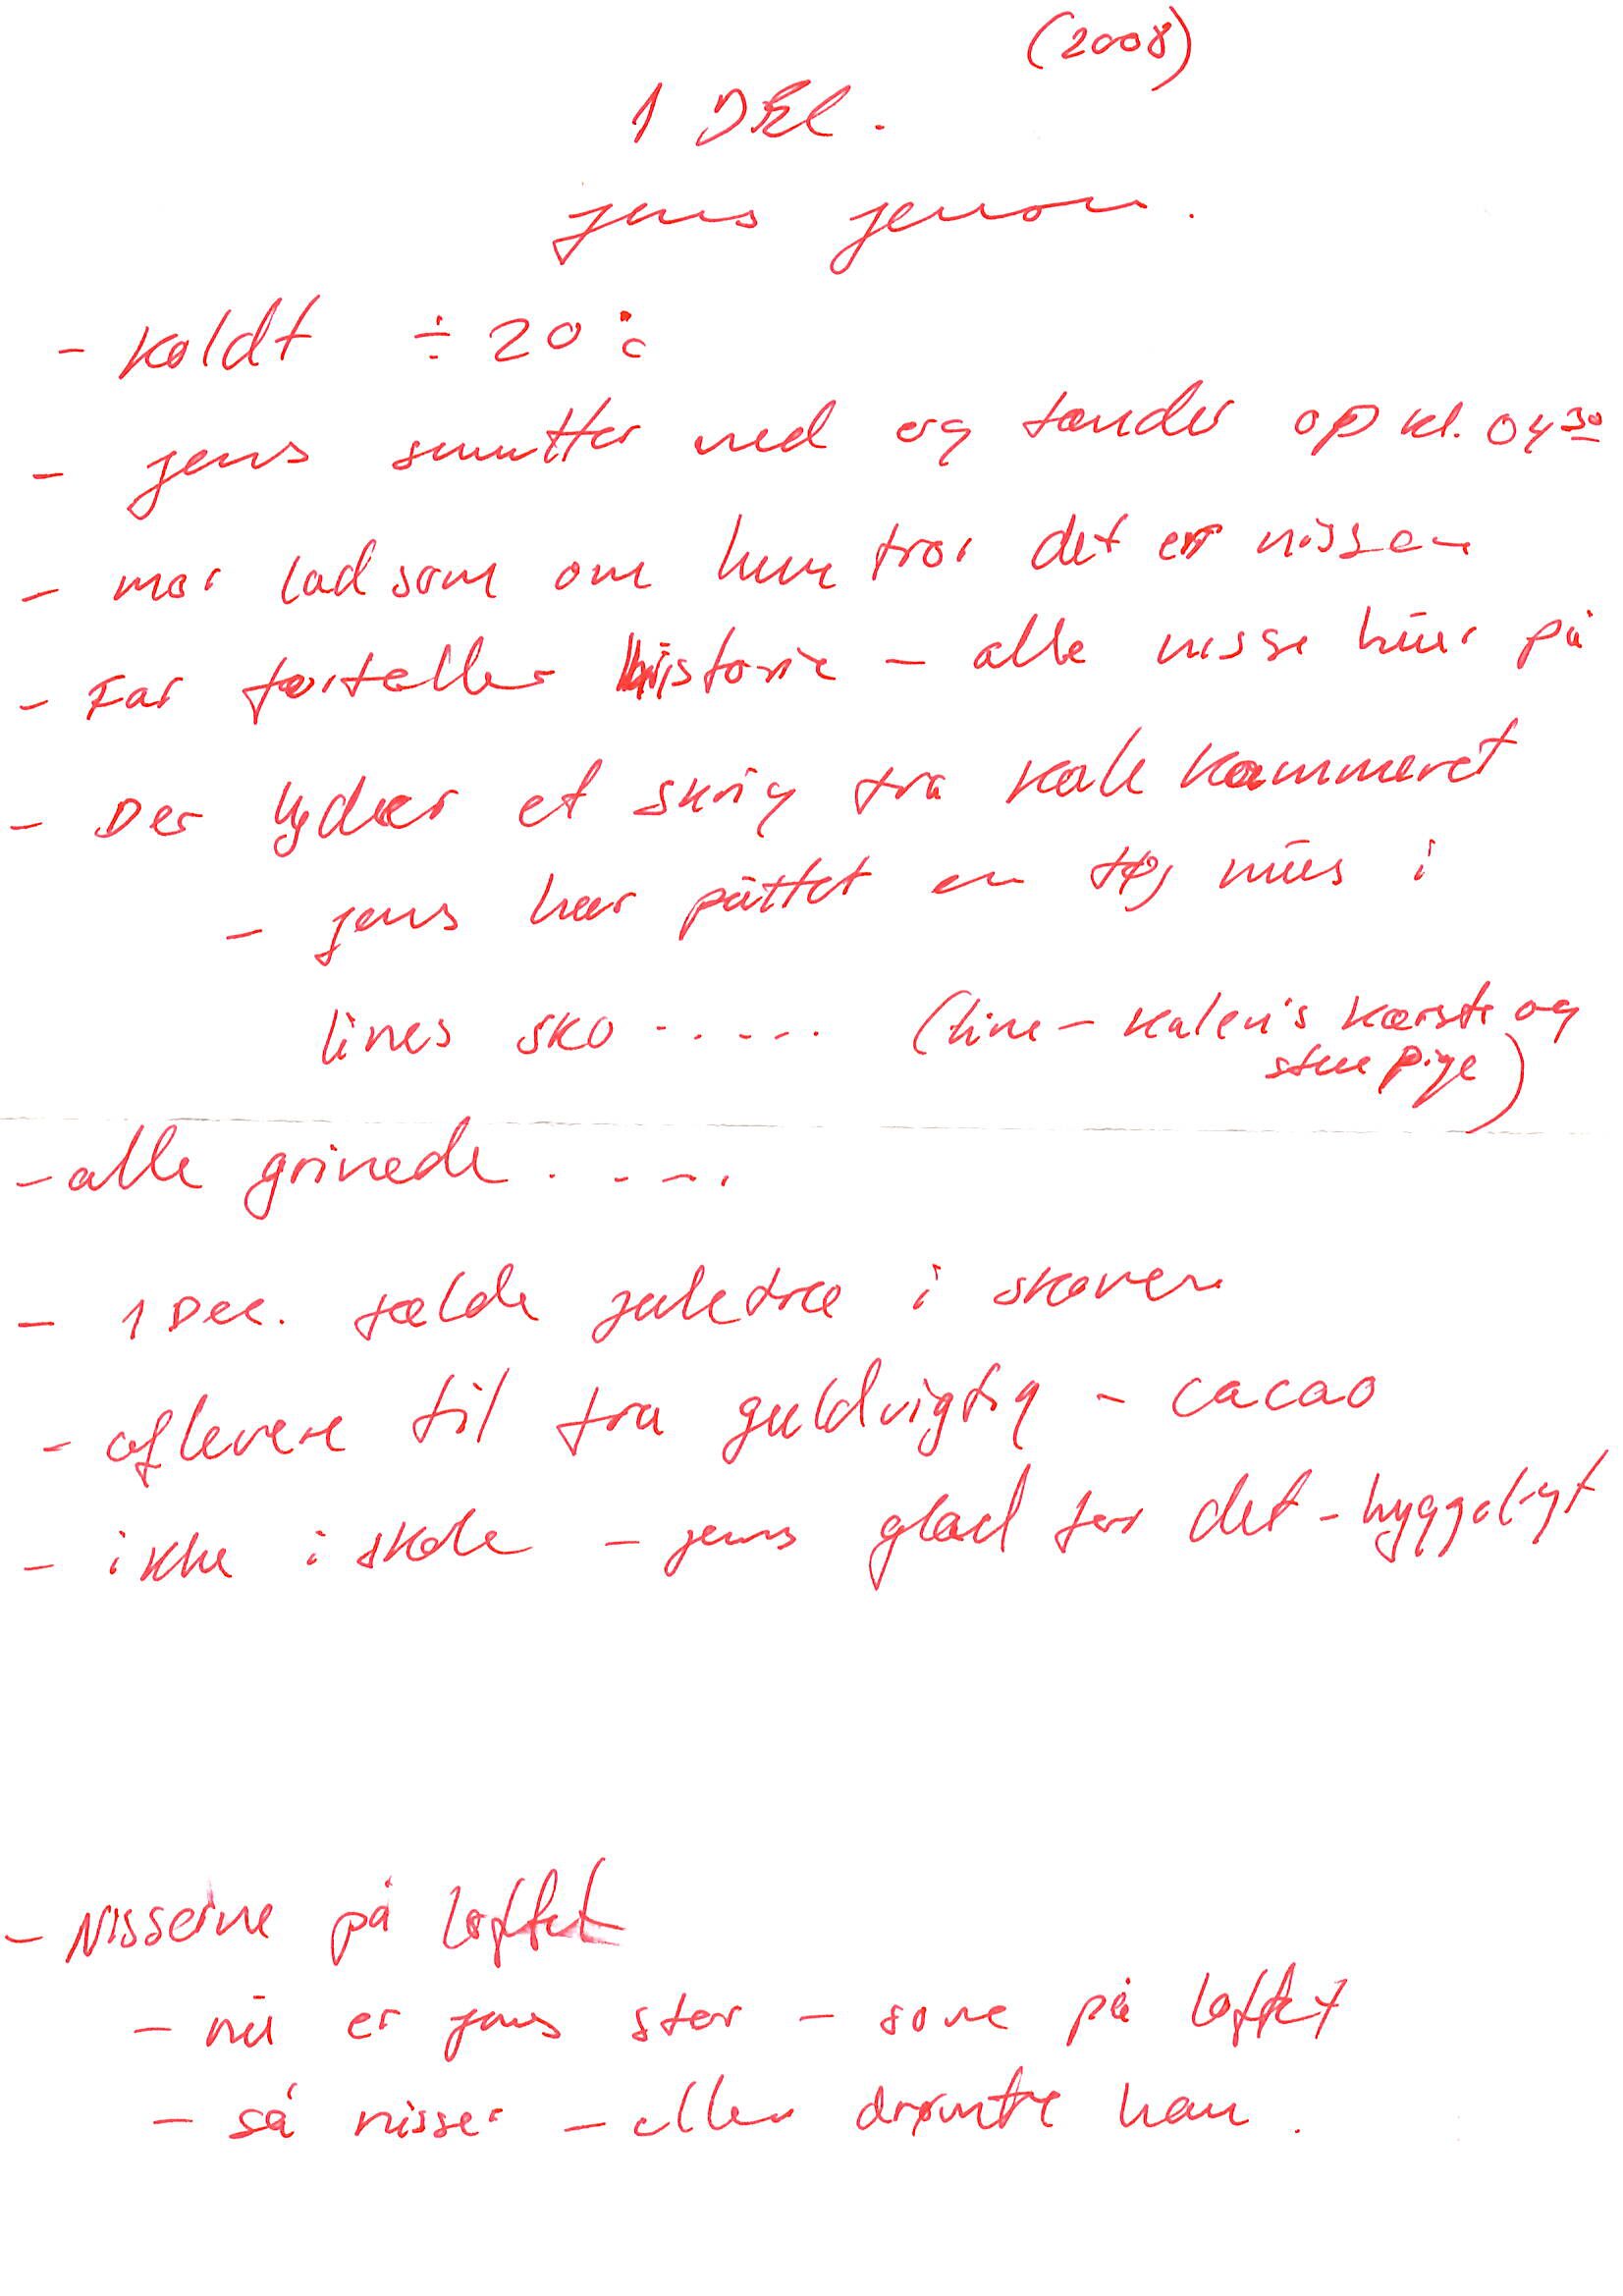 (2008)
1 DEL.
Jens Jenson.
- Koldt ÷ 20°c
- Jens smutter ned og tænder op kl. 04 30
- mor lad som om hun tror det er nissen
- Far fortæller historie - alle nisse huer på
- Der lyder et skrig fra karle kammeret
- Jens har puttet en tøj mus i
lines sko ...... (line - kalen's kæreste og
stue pige)
- alle grinede .....
- 1 Dec. fælde juletræ i skoven
- aflevere til fru guldvigtig - cacao
- ikke i skole - jens glad for det - hyggeligt
- Nisserne på loftet
- nu er jens stor - sove på loftet
- så nisser - eller drømte han.